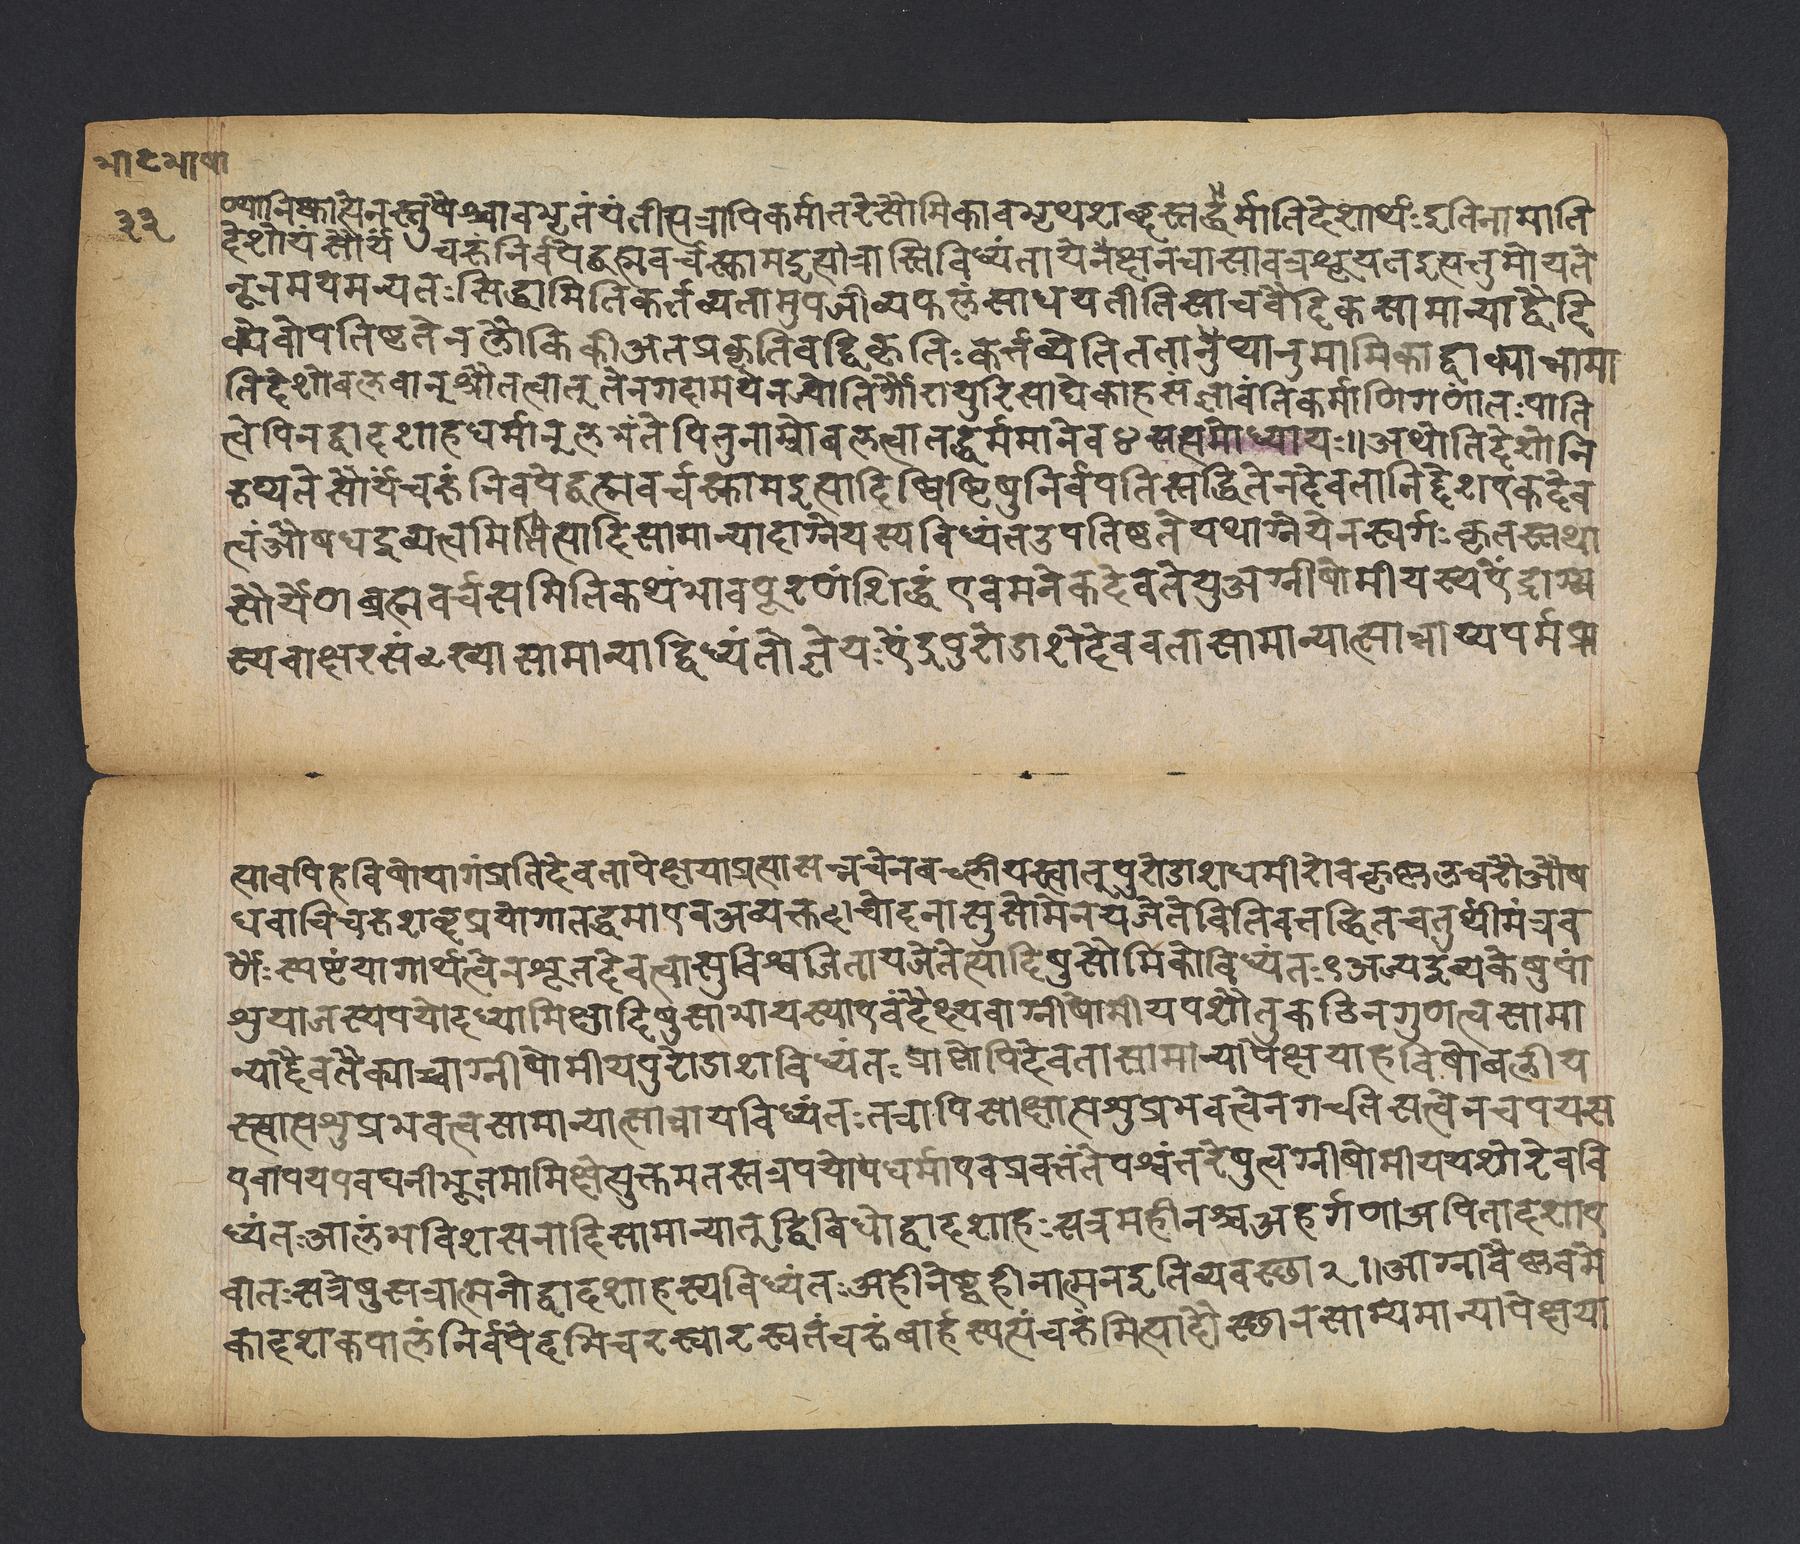 भाटभाषा
३३
ण्यानिष्कासेनस्तुषैश्चावभृतंयंतीसत्रापिकर्मातरेसौमिकावभृथशब्दस्तद्धैर्मातिदेशार्थः इतिनामाति
देशोयं सौर्यं चरुनिर्वपेद्ब्रह्मवर्चस्कामइत्यात्रास्तिविध्यंतायेनैक्षनचासावत्रश्रूयतइसत्तुमीयते
नूनमयमन्यतः सिद्धामितिकर्तव्यतामुपजीव्यफलंसाधयतीतिसाचवैदिकसामान्याद्वैदि
क्येवोपतिष्ठतेनलौकिकीअतप्रकृतिवद्विकृतिः कर्तव्येतिततानुथानुमामिकाद्वाक्यान्नामा
तिदेशोबलवानूश्रौतत्वात्तुतेनगवामयेनज्योतिर्गौरायुरिसाद्येकाहसंज्ञावंतिकर्माणिगणांतःपाति
त्वेपिनद्वादशाहधर्मानूलभंतेपितुनाम्नोबलत्वातद्धर्ममानेव४सप्तमोध्यायः॥अथातिदेशोनि
रुप्यतेसौर्यंचरुंनिर्वपेद्ब्रह्मवर्चस्कामइत्यादिष्विष्टिषुनिर्वपतिस्तद्धितेनदेवतानिर्द्देशएकदेव
त्वंऔषधद्रव्यत्वमित्तित्यादिसामान्यादाग्नेयस्यविध्यंतउपतिष्ठतेयथाग्नेयेनस्वर्गः कृतस्तथा
सौर्येणब्रह्मवर्चसमितिकथंभावपूरणंशिद्धंएवमनेकदेवतेयुअग्नीषोमीयस्यऐंद्राग्न्य
स्यवाक्षरसंख्यासामान्याद्विध्यंतोज्ञेयःऐंद्रपुरोडाशेदेववतासामान्यात्सान्नाय्यपर्मप्रा
त्पावपिहविषोयागंप्रतिदेवतापेक्षयाप्रत्यासन्नचेनबच्लीयस्त्वात्तुपुरोडाशधर्मारोवकृष्णलचरौऔष
धवाचिचरुशब्दप्रयोगातद्धमाएवअव्यक्तचोदनासुसोमेनयजेतेवितिवतद्धितचतुर्थीमंत्रव
र्णैः स्पष्टंयागार्थत्वेनश्रूतदेवत्वासुविश्वजितायजेतेत्यादिषुसोमिकोविध्यंतः९अज्यद्रव्यकेषुपां
श्रुयाजस्यपयोदध्यामिक्षादिषुसान्नायस्याएवंदैक्ष्यवाग्नीषोमीयपशौतुकठिनगुणत्वसामा
न्यांदैवतैक्याच्चाग्नीषोमीयपुरोडाशविध्यंतः प्राप्तोपिदेवतासामान्यापेक्षयाहविषोबलीय
स्त्वात्पश्रुप्रभवत्वसामान्यात्सान्नायविध्यंतः तत्रापिसाक्षात्पश्रुप्रभवत्वेनगच्चतिसत्वेनचपयस
एवापयएवघनीभूतमामिक्षेत्युक्तमतस्तत्रपयोपधर्माएवप्रवर्ततेपश्वंतरेषुत्वग्नीषोमीययशोरेववि
ध्यंतःआलंभविशसनादिसामान्यातुद्विविधोद्वादशाहःसत्रमहीनश्चअहर्गणाअपितादृशाए
वातःसत्रेषुसत्रात्मनोद्वादशाहस्यविध्यंतःअहीनेष्वहीनात्मनइतिव्यवस्था२॥आग्नावैष्णवमे
कादशकपालंनिर्वपेदभिचरस्वारस्वतंचरुंबार्हस्पत्यंचरुंमित्यादौस्थानसाम्यमान्यापेक्षया